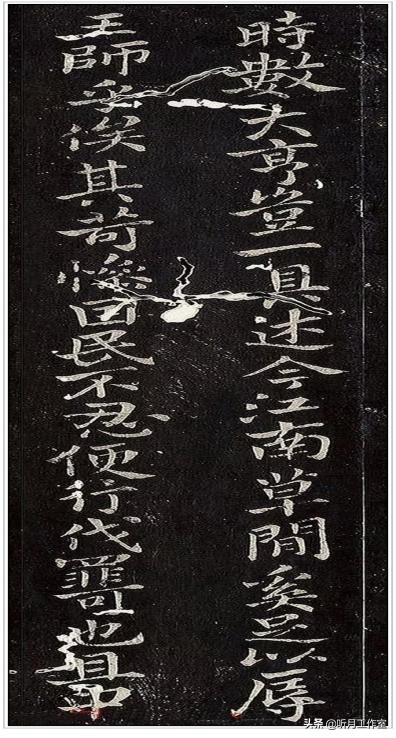 時數大亨豈一具述今江南草間奚足以辱
王師乎俟其苛慘困民不忍便行伐也且
头条 @听月工作室